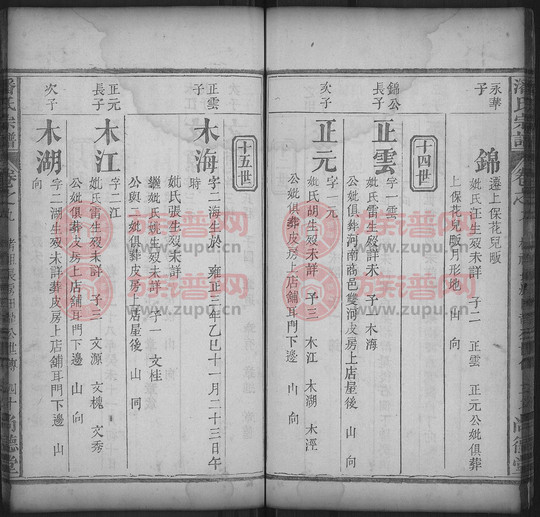 潘氏宗譜
永華
子
錦
遷上保花兒畈
妣氏汪生歿未詳 子二 正雲 正元公妣俱葬
上保花兒畈月形地 山 向
十四世
錦公
長子
正雲
字一雲
妣氏雷生歿未詳 子一 木海
公妣俱葬河南商邑雙河皮房上店屋後 山 向
次子
正元
字一元
妣氏胡生歿未詳 子三 木江 木湖 木涇
公妣俱葬皮房上店舖耳門下邊 山 向
十五世
正雲
子
木海
字二海生於 雍正三年乙巳十一月二十三日午
時
妣氏張生歿未詳
繼妣氏姚生歿未詳 子一 文桂
公與二妣俱葬皮房上店屋後 山 向
正元
長子
木江
字二江
妣氏雷生歿未詳 子三 文源 文槐 文秀
公妣俱葬皮房上店舖耳門下邊 山 向
次子
木湖
字二湖生歿未詳葬皮房上店舖耳門下邊 山
向
潘氏宗譜
卷之九
尚德堂
族譜网
www.zupu.cn